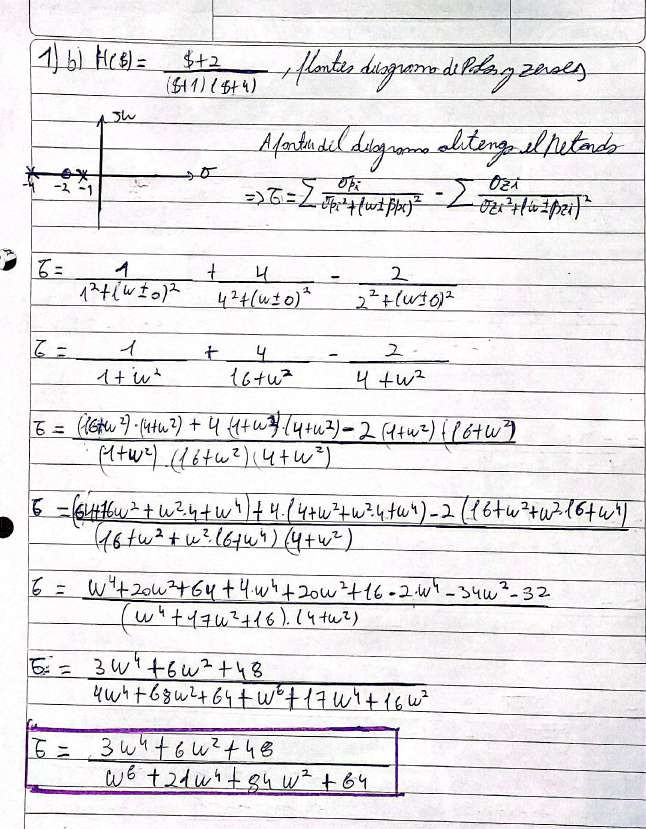 1) b) H($) = $+2 / ($+1)($+4) , Plantes diagrama de Polos y zeros
jw
σ
-4 -2 -1
A partir del diagrama obtengo el Retardo
=> τ = Σ σpi / σpi²+(w±βpi)² - Σ σzi / σzi²+(w±βzi)²
τ = 1 / 1²+(w±0)² + 4 / 4²+(w±0)² - 2 / 2²+(w±0)²
τ = 1 / 1+w² + 4 / 16+w² - 2 / 4+w²
τ = (16+w²)·(4+w²) + 4(1+w²)·(4+w²) - 2(1+w²)·(16+w²) / (1+w²)·(16+w²)(4+w²)
τ = (64+16w²+w²·4+w⁴)+4·(4+w²+w²·4+w⁴)-2(16+w²+w²·16+w⁴) / (16+w²+w²·16+w⁴)(4+w²)
τ = w⁴+20w²+64+4·w⁴+20w²+16-2·w⁴-34w²-32 / (w⁴+17w²+16)·(4+w²)
τ = 3w⁴+6w²+48 / 4w⁴+68w²+64+w⁶+17w⁴+16w²
τ = 3w⁴+6w²+48 / w⁶+21w⁴+84w²+64